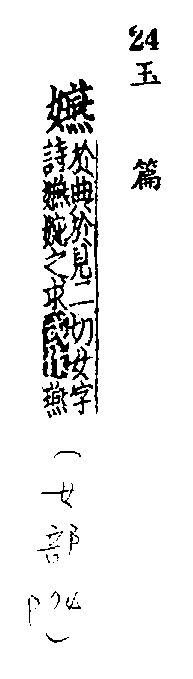 24
玉篇
嬿
於典於見二切女字
詩嬿婉之求或作燕
(女部
P24)